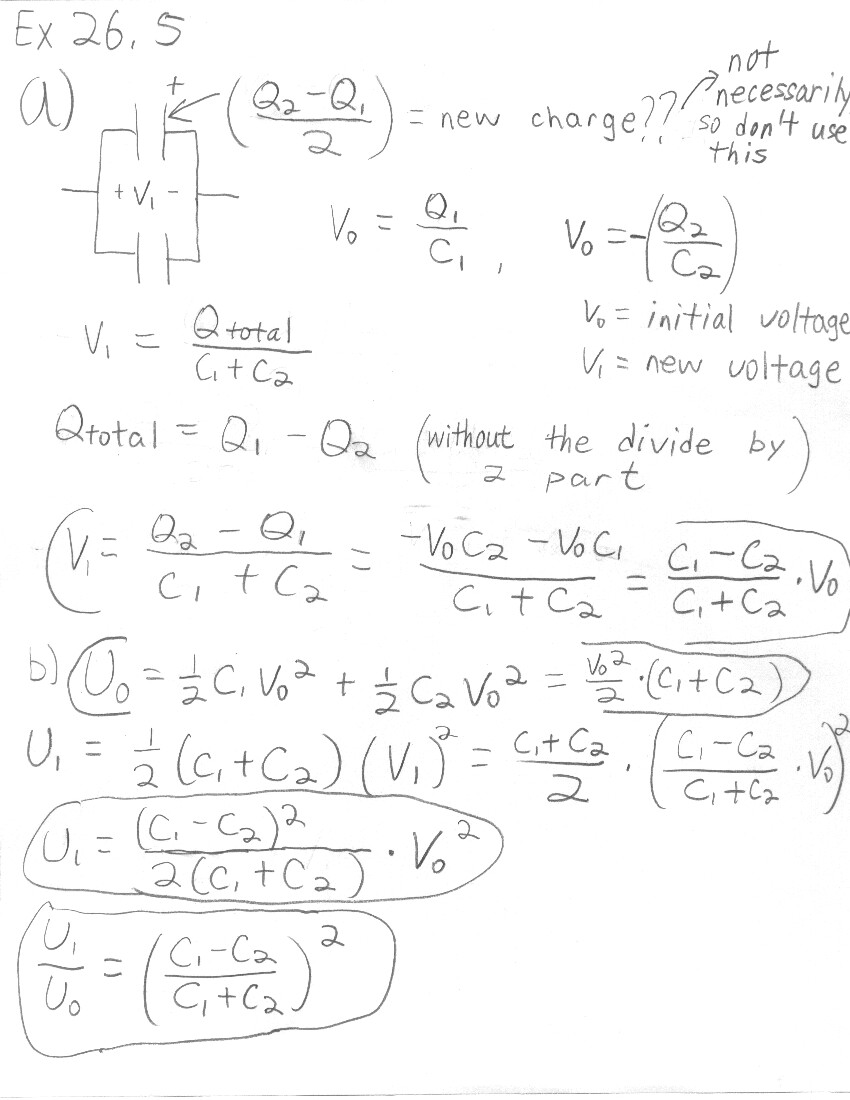 Ex 26.5
a) + (Q₂ - Q₁)/2 = new charge?? not necessarily so don't use this
+ V₁ -
V₀ = Q₁/C₁ , V₀ = -(Q₂/C₂)
V₀ = initial voltage
V₁ = Q total/(C₁ + C₂)
V₁ = new voltage
Q total = Q₁ - Q₂ (without the divide by 2 part)
V₁ = (Q₂ - Q₁)/(C₁ + C₂) = (-V₀C₂ - V₀C₁)/(C₁ + C₂) = (C₁ - C₂)/(C₁ + C₂) · V₀
b) U₀ = ½ C₁ V₀² + ½ C₂ V₀² = V₀²/2 · (C₁ + C₂)
U₁ = ½ (C₁ + C₂) (V₁)² = (C₁ + C₂)/2 · ((C₁ - C₂)/(C₁ + C₂) · V₀)²
U₁ = (C₁ - C₂)²/(2(C₁ + C₂)) · V₀²
U₁/U₀ = ((C₁ - C₂)/(C₁ + C₂))²